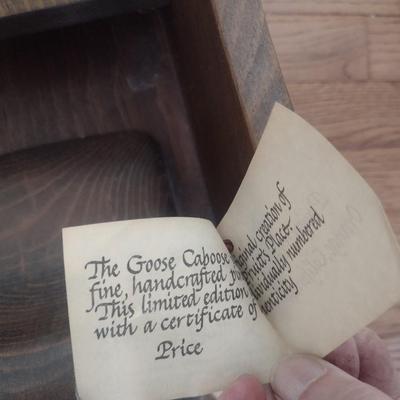 The Goose Caboose ginal creation of
fine, handcrafted Place.
This limited edition vidually numbered
with a certificate of enticity
Price